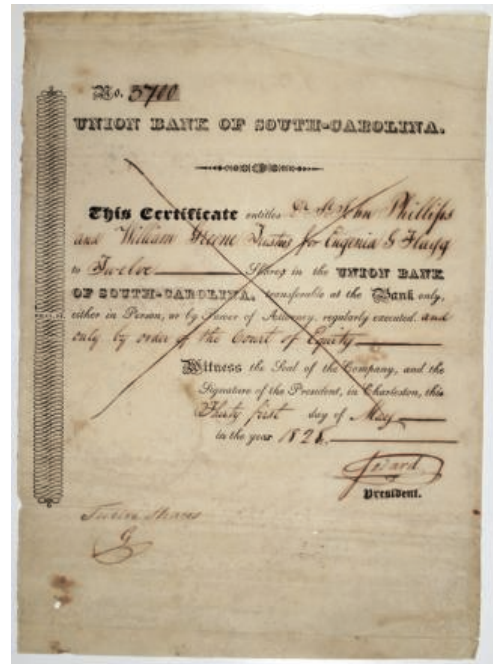 No. 3700
UNION BANK OF SOUTH-CAROLINA.
This Certificate entitles John Phillips
and William Greene Trustees for Eugenia G Flagg
to Twelve Shares in the UNION BANK
OF SOUTH-CAROLINA, transferable at the Bank only,
either in Person, or by Power of Attorney, regularly executed and
only by order of the Court of Equity
Witness the Seal of the Company, and the
Signature of the President, in Charleston, this
Thirty first day of May
in the year 1828.
President.
Twelve Shares